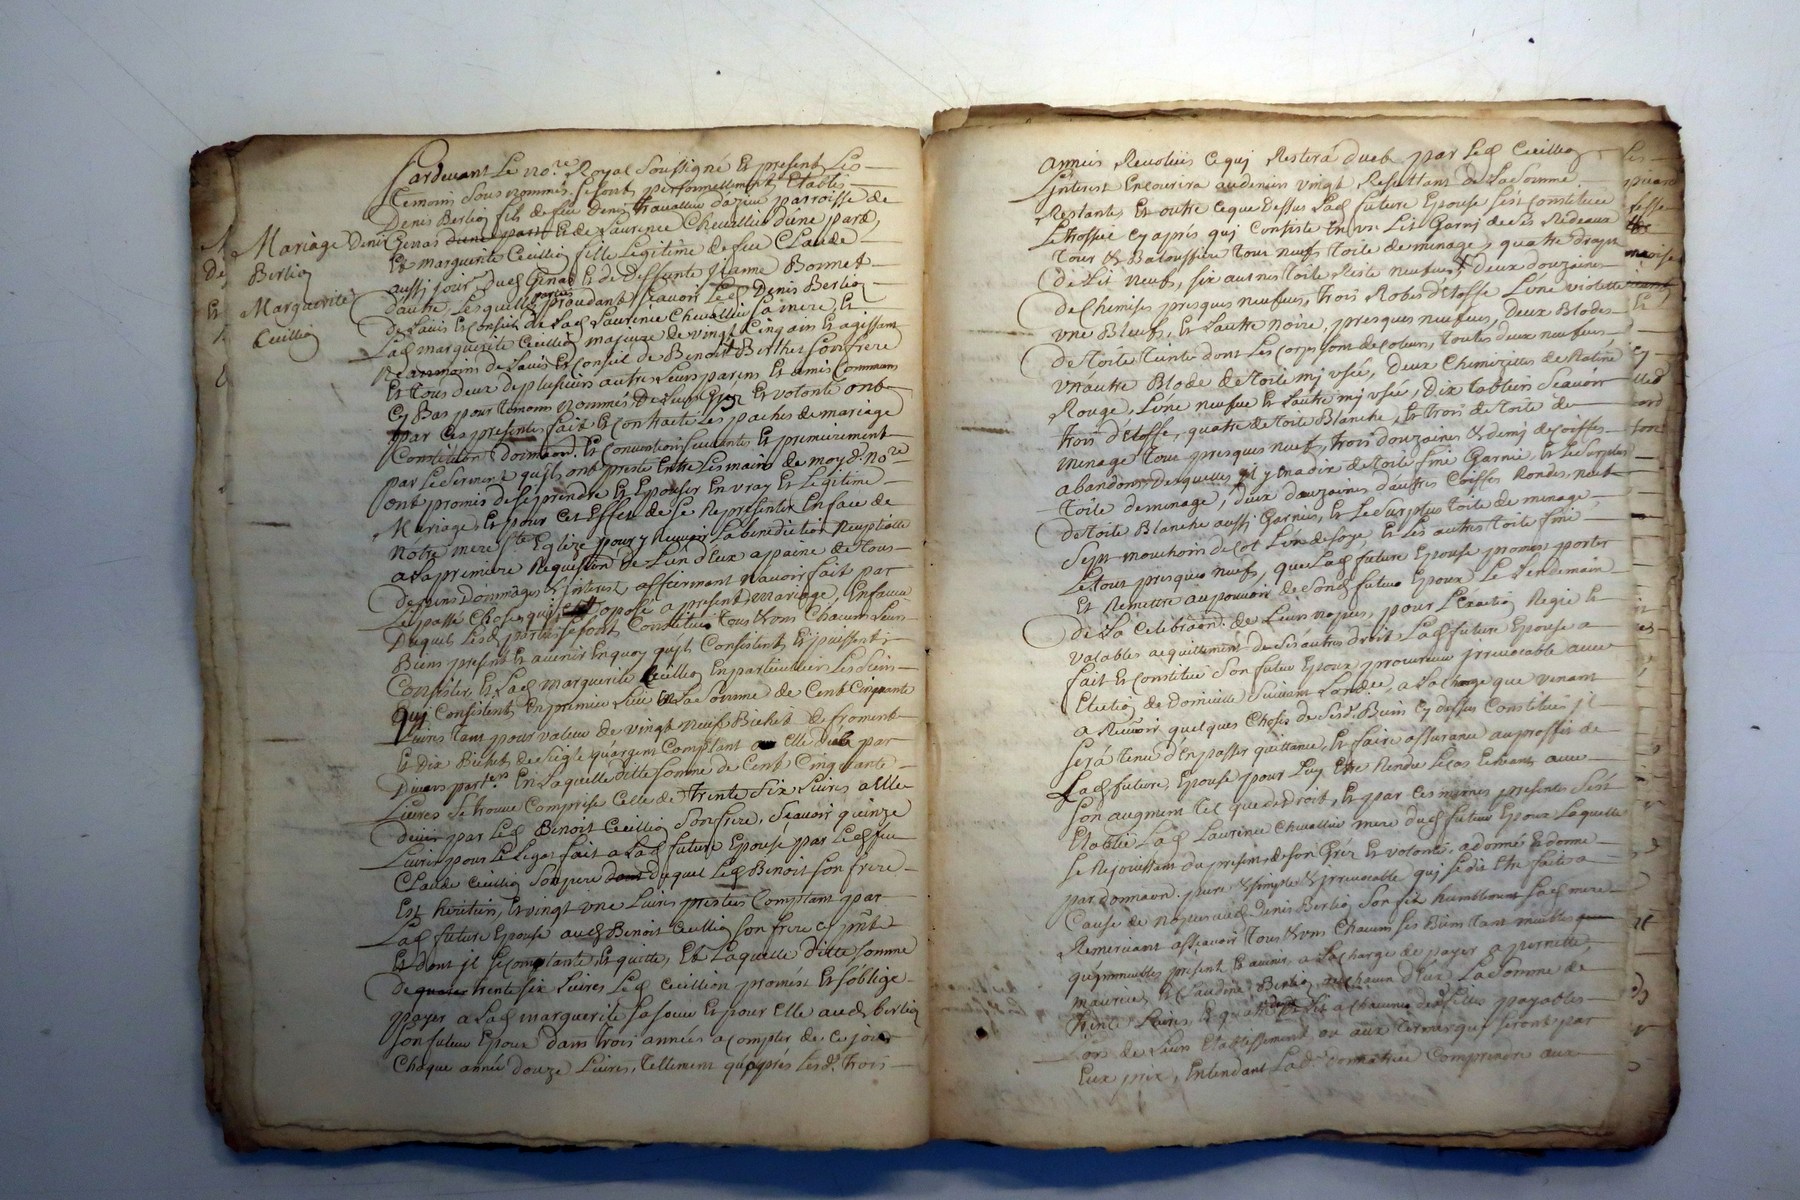 Mariage Denis
Berlioz
Et
Marguerite
Ceillioz
Pardevant Le no.re Royal Soussigné Et present Les
temoins Sous nommés, se sont personnellement Etablis
Denis Berlioz fils de feu Denis travailleur parroisse de
Genas d'une part Et de Laurence Chevallier d'une part,
Et marguerite Ceillioz fille Legitime de feu Claude
aussi jour dud. Genas Et de Deffunte Jeanne Bonnet
d'autre, Lesquelles parties procedant sçavoir Led. Denis Berlioz
de L'avis Et Conseil de Lad. Laurence Chevallier sa mere, Et
Lad. marguerite Ceillioz majeure de vingt Cinq ans Et agissant
neanmoins de L'avis Et Conseil de Benoit son frere
Et tous deux de plusieurs autres Leurs parens Et amis Communs
Cy Bas pour temoins nommés, De Leurs Gréz Et volonté ont
par Ces presentes fait Et Contracté Les paches de mariage
Constitution Et Conventions suivantes Et premierement
par Le serment qu'ils ont presté Entre Les mains de moy d. no.re
ont promis de se prendre Et Epouser En vray Et Legitime
Mariage Et pour Cet Effet de se Representer En face de
notre mere s.te Eglize pour y Recevoir La benediction Neuptialle
a La premiere Requisition de L'un d'Eux a paine de tous
Despens Dommages & interest, affirmant n'avoir fait par
Le passé Chose qui soit oposé a present Mariage, En faveur
Duquel Lesd. parties se sont Constitué tous & uns Chacuns Leurs
Biens present Et avenir En quoy qu'ils Consistent Et puissent
Consister, Et Lad. marguerite Ceillioz En particullier Les siens
Qui Consistent En premier Lieu En La somme de Cent Cinquante
Livres tant pour valeur de vingt neuf Bichet de froment
Et dix Bichet de seigle qu'argent Comptant a Elle deub par
Divers part.ers En Laquelle ditte somme de Cent Cinquante
Livres se trouve Comprise Celle de trente six Livres a Elle
deüe par Led. Benoit Ceillioz son frere, sçavoir quinze
Livres pour Le Legat fait a Lad. future Epouse par Led. feu
Claude Ceillioz son pere duquel Led. Benoit son frere
Est heritier, Et vingt une Livres prestées Comptant par
Lad. future Epouse aud. Benoit Ceillioz son frere cy pnt
Et dont il se Contante, Et quitte, Et Laquelle ditte somme
de trente six Livres Led. Ceillioz promest Et s'oblige
payer a Lad. marguerite sa soeur Et pour Elle aud. berlioz
son futeur Epoux dans trois années a compter de Ce jour
Chaque année douze Livres, tellement qu'après Lesd. trois
années Revolües Ce qui Restera dueb par Led. Ceillioz
L'interest En courira au denier vingt Resultant de La somme
Restante, Et outre Ce que Dessus Lad. future Epouse s'est Constituée
Le trossel Cy après qui Consiste En un Lit Garni de Ses Rideaux
tour & Baloussiere tour neuf toile de menage, quatre draps
de Lit neufs, six autres toile Reste neufve, & deux douzaines
de Chemises presques neufves, trois Robes d'Etoffe L'une violette
une Bleuf, Et L'autre noire, presques neufves, Deux Blodes
de toile teinte dont Les Corps sont de Coleurs, toutes deux neufves,
un autre Blode de toile mj usée, deux Chemizettes de Ratine
Rouge, L'une neufve Et L'autre mj usée, Dix tabliers sçavoir
trois d'Etoffe, quatre de toile Blanche, Et trois de toile de
menage tous presques neufs, trois douzaines & demy de Coiffes
abandons Desquelles il y En a dix de toile fine Garnie, Et Le surplus
toile de menage, deux douzaines d'autres Coiffes Rondes neuf
de toile Blanche aussi Garnies, Et Le surplus toile de menage
Sept mouchoirs de Col L'un de soye Et Les autres toile fine
Le tout presques neufs, que Lad. future Epouse promest porter
Et Remettre au pouvoir de son d. futeur Epoux Le Lendemain
de La Celebraon. de Leurs nopces, pour L'Exaction Regie Et
valables acquittement de Ses autres droit Lad. future Epouse a
fait Et Constitué Son futeur Epoux procureur irrevocable avec
Election de Domicille suivant L'ordée, a La charge que venant
a Recevoir quelques Choses de Ses d. Biens Cy dessus Constitués il
sera tenu d'En passer quittance, Et faire assurance au proffit de
Lad. future, Epouse pour Luy Etre Rendu Le Cas Echeant avec
son augment tel que de Droit, Et par Ces mêmes presentes s'est
Etablie Lad. Laurence Chevallier mere dud. futeur Epoux Laquelle
Se Rejouissant du present de son Gréz Et volonté, a donné & donne
par donnaon. pure & simple & irrevocable qui se dit Etre faite a
Cause de nopces aud. Denis Berlioz son fils humblement sad. mere
Remerciant assçavoir tous & uns Chacuns Ses Biens tant meubles
qu'immeubles present Et avenir, a La Charge de payer a pernette,
maurice, Et Claudine Berlioz, a Chacun d'Eux La somme de
trente Livres, Et a Chacune de Filles payables
ors de Leurs Etablissement ou aux termes qui seront par
Eux prix, Entendant Lad. donnatrice Comprendre aux